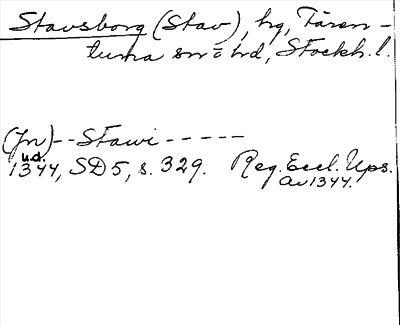 Stavsborg (Stav), hg, Tären-
tuna sn o hd, Stockh. l.
(Jn)--Stawi-----
u.d.
1344, SD 5, s. 329. Reg. Eccl. Ups.
av 1344.